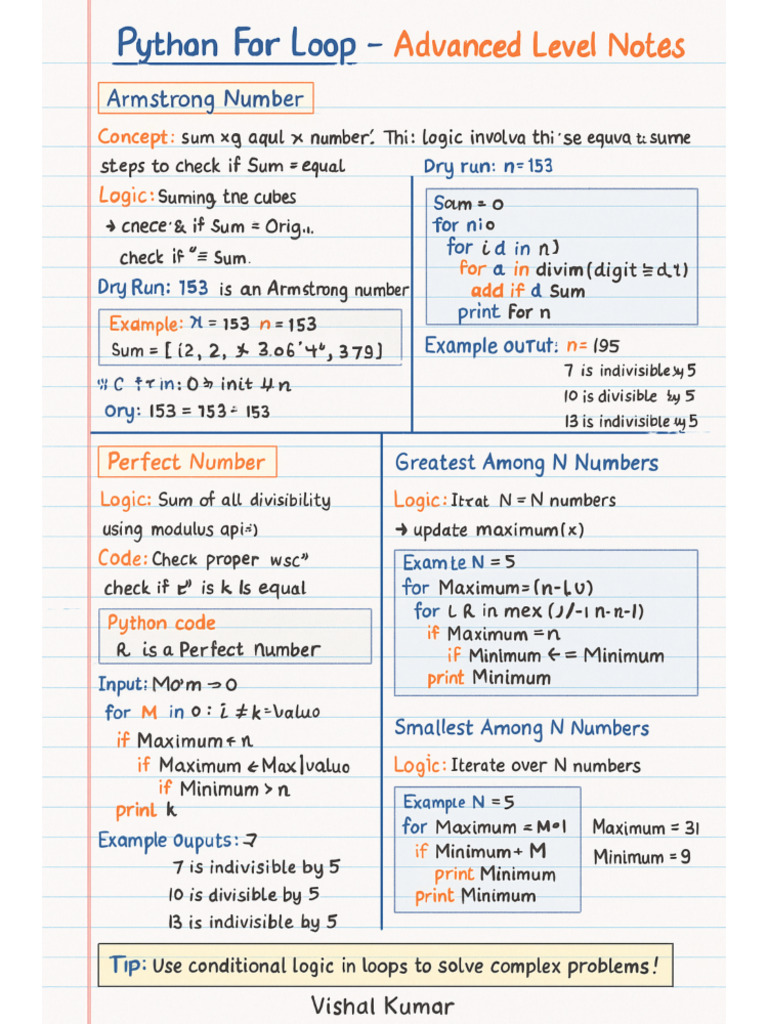 Python For Loop – Advanced Level Notes
Armstrong Number
Concept: sum xg aqul x number. Thi: logic involva thi se equva t: sume
steps to check if Sum = equal
Logic: Suming tne cubes
→ cnece & if Sum = Orig..
check if = Sum.
Dry Run: 153 is an Armstrong number
Example: x = 153 n = 153
Sum = [i2, 2, 3.06 4, 379]
init
Ory: 153 = 153 = 153
Dry run: n=153
Soum = 0
for nio
for i d in n)
for a in divim(digit d.t)
add if d Sum
print For n
Example ouTut: n= 195
7 is indivisible by 5
10 is divisible by 5
13 is indivisible uy 5
Perfect Number
Logic: Sum of all divisibility
using modulus api
Code: Check proper wsc"
check if is k Is equal
Python code
R is a Perfect number
Input: → 0
for M in 0 : i ≠ k=Valuo
if Maximum n
if Maximum ← Max|valuo
if Minimum > n
prinl k
Example Ouputs: 7
7 is indivisible by 5
10 is divisible by 5
13 is indivisible by 5
Greatest Among N Numbers
Logic: Itrat N = N numbers
→ update maximum(x)
Examte N = 5
for Maximum=(n-l,u)
for L R in mex (J/-1 n-n-1)
if Maximum = n
if Minimum ← = Minimum
print Minimum
Smallest Among N Numbers
Logic: Iterate over N numbers
Example N = 5
for Maximum = M•1
if Minimum+ M
print Minimum
print Minimum
Maximum = 31
Minimum = 9
Tip: Use conditional logic in loops to solve complex problems!
Vishal Kumar